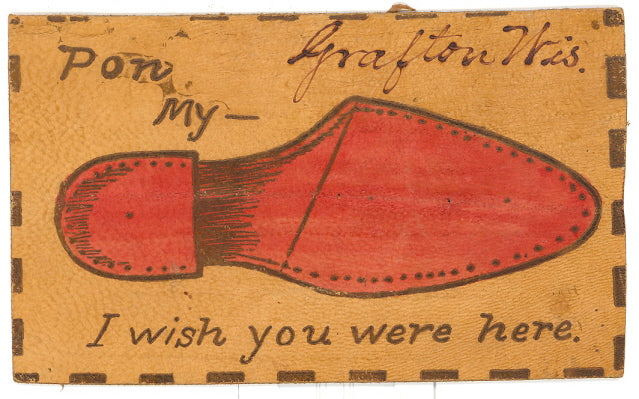 Grafton Wis.
Pon
My —
I wish you were here.